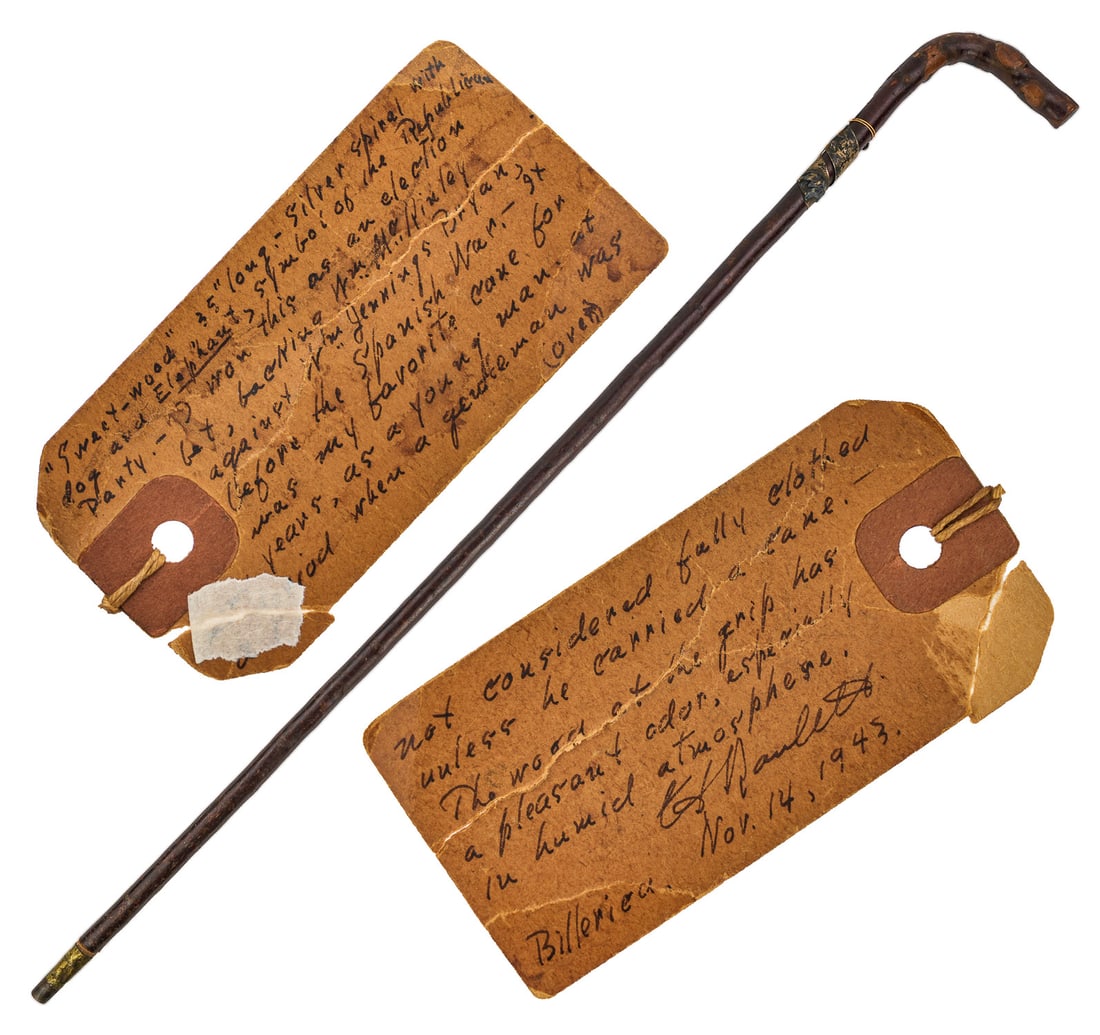 "Sweet-wood" 35" long - Silver Spiral with
dog and Elephant, symbol of the Republican
Party. - I won this as an election
bet, backing Wm. McKinley
against Wm Jennings Bryan,
before the Spanish War. - It
was my favorite cane for
years, as a young man, at
when a gentleman was
(over)
not considered fully clothed
unless he carried a cane. -
The wood at the grip has
a pleasant odor, especially
in humid atmosphere.
Nov. 14, 1943.
Billerica.